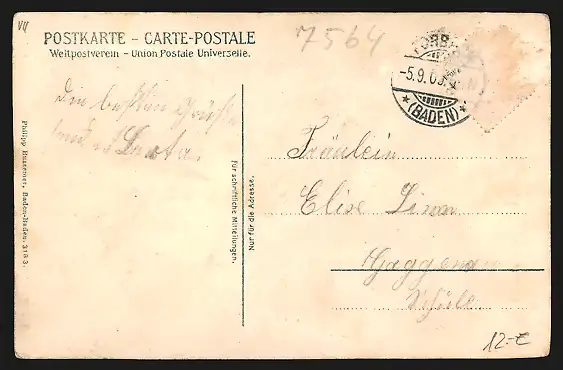 VII
POSTKARTE – CARTE-POSTALE
Weltpostverein – Union Postale Universelle.
7564
FORBACH
-5.9.05.
(BADEN)
Die besten Grüße
Lerta.
Philipp Kussemer, Baden-Baden. 3183.
für schriftliche Mitteilungen.
Nur für die Adresse.
Fräulein
Elise
Gaggenau
Schule.
12-€